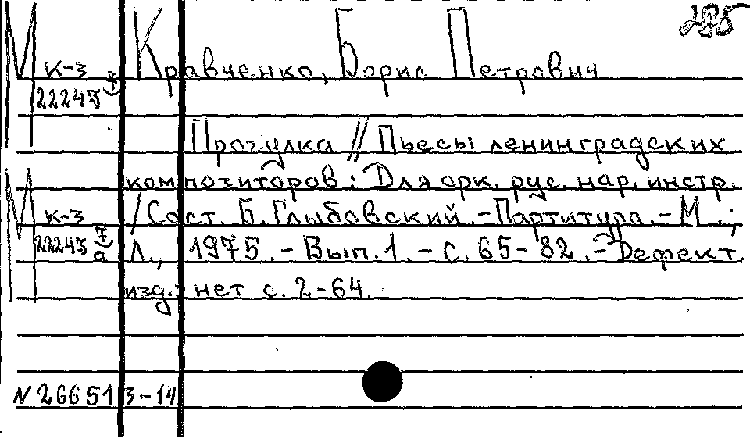 285
М К-3 Кравченко, Борис Петрович
22243
Прогулка // Пьесы ленинградских
композиторов: Для орк. рус. нар. инстр.
М К-3 / Сост. Б. Глыбовский. - Партитура. - М.;
22243 Л., 1975. - Вып. 1. - С. 65-82. - Дефект
изд.: нет с. 2-64.
N 266513-14